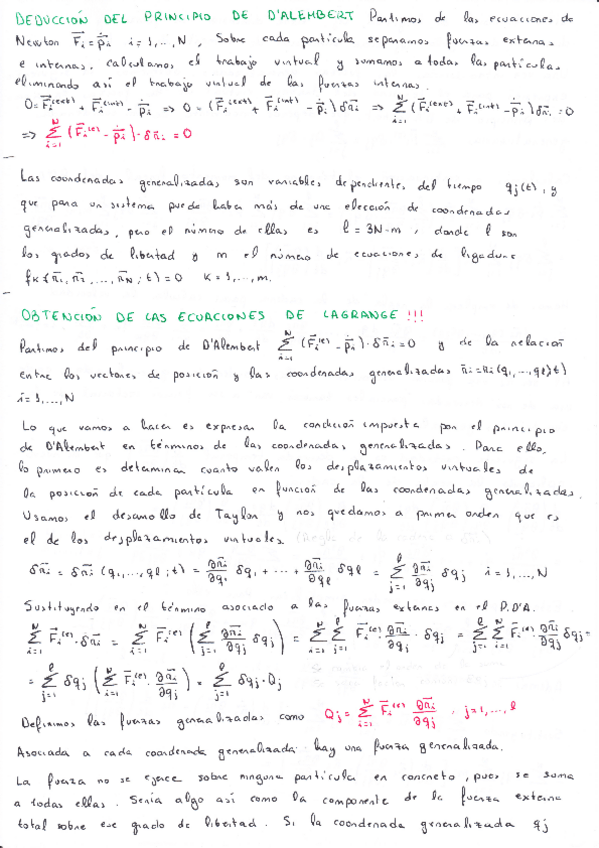 DEDUCCIÓN DEL PRINCIPIO DE D'ALEMBERT Partimos de las ecuaciones de
Newton F⃗ᵢ = ṗ⃗ᵢ i = 1,..,N, Sobre cada partícula separamos fuerzas externas
e internas. calculamos el trabajo virtual y sumamos a todas las partículas
eliminando así el trabajo virtual de las fuerzas internas.
0 = F⃗ᵢ^(ext) + F⃗ᵢ^(int) - ṗ⃗ᵢ => 0 = (F⃗ᵢ^(ext) + F⃗ᵢ^(int) - ṗ⃗ᵢ) δr⃗ᵢ => Σ_{i=1}^{N} (F⃗ᵢ^(ext) + F⃗ᵢ^(int) - ṗ⃗ᵢ) δr⃗ᵢ = 0
=> Σ_{i=1}^{N} (F⃗ᵢ^(e) - ṗ⃗ᵢ)·δr⃗ᵢ = 0
Las coordenadas generalizadas son variables dependientes del tiempo qj(t), y
que para un sistema puede haber más de una elección de coordenadas
generalizadas, pero el número de ellas es l = 3N-m, donde l son
los grados de libertad y m el número de ecuaciones de ligadura
fK(r⃗₁, r⃗₂, ..., r⃗N; t) = 0 K = 1,..., m.
OBTENCIÓN DE LAS ECUACIONES DE LAGRANGE !!!
Partimos del principio de D'Alembert Σ_{i=1}^{N} (F⃗ᵢ^(e) - ṗ⃗ᵢ)·δr⃗ᵢ = 0 y de la relación
entre los vectores de posición y las coordenadas generalizadas r⃗ᵢ = r⃗ᵢ(q₁,...,ql;t)
i = 1,...,N
Lo que vamos a hacer es expresar la condición impuesta por el principio
de D'Alembert en términos de las coordenadas generalizadas. Para ello,
lo primero es determinar cuanto valen los desplazamientos virtuales de
la posición de cada partícula en función de las coordenadas generalizadas.
Usamos el desarrollo de Taylor y nos quedamos a primer orden que es
el de los desplazamientos virtuales.
δr⃗ᵢ = δr⃗ᵢ (q₁,...,ql;t) = ∂r⃗ᵢ/∂q₁ δq₁ + ... + ∂r⃗ᵢ/∂ql δql = Σ_{j=1}^{l} ∂r⃗ᵢ/∂qj δqj i = 1,...,N
Sustituyendo en el término asociado a las fuerzas externas en el P.D'A.
Σ_{i=1}^{N} F⃗ᵢ^(e)·δr⃗ᵢ = Σ_{i=1}^{N} F⃗ᵢ^(e) (Σ_{j=1}^{l} ∂r⃗ᵢ/∂qj δqj) = Σ_{i=1}^{N} Σ_{j=1}^{l} F⃗ᵢ^(e)·∂r⃗ᵢ/∂qj·δqj = Σ_{j=1}^{l} Σ_{i=1}^{N} F⃗ᵢ^(e)·∂r⃗ᵢ/∂qj δqj =
= Σ_{j=1}^{l} δqj (Σ_{i=1}^{N} F⃗ᵢ^(e)·∂r⃗ᵢ/∂qj) = Σ_{j=1}^{l} δqj·Qj
Definimos las fuerzas generalizadas como Qj = Σ_{i=1}^{N} F⃗ᵢ^(e) ∂r⃗ᵢ/∂qj, j = 1,...,l
Asociada a cada coordenada generalizada hay una fuerza generalizada.
La fuerza no se ejerce sobre ninguna partícula en concreto, pues se suma
a todas ellas. Sería algo así como la componente de la fuerza externa
total sobre ese grado de libertad. Si la coordenada generalizada qj